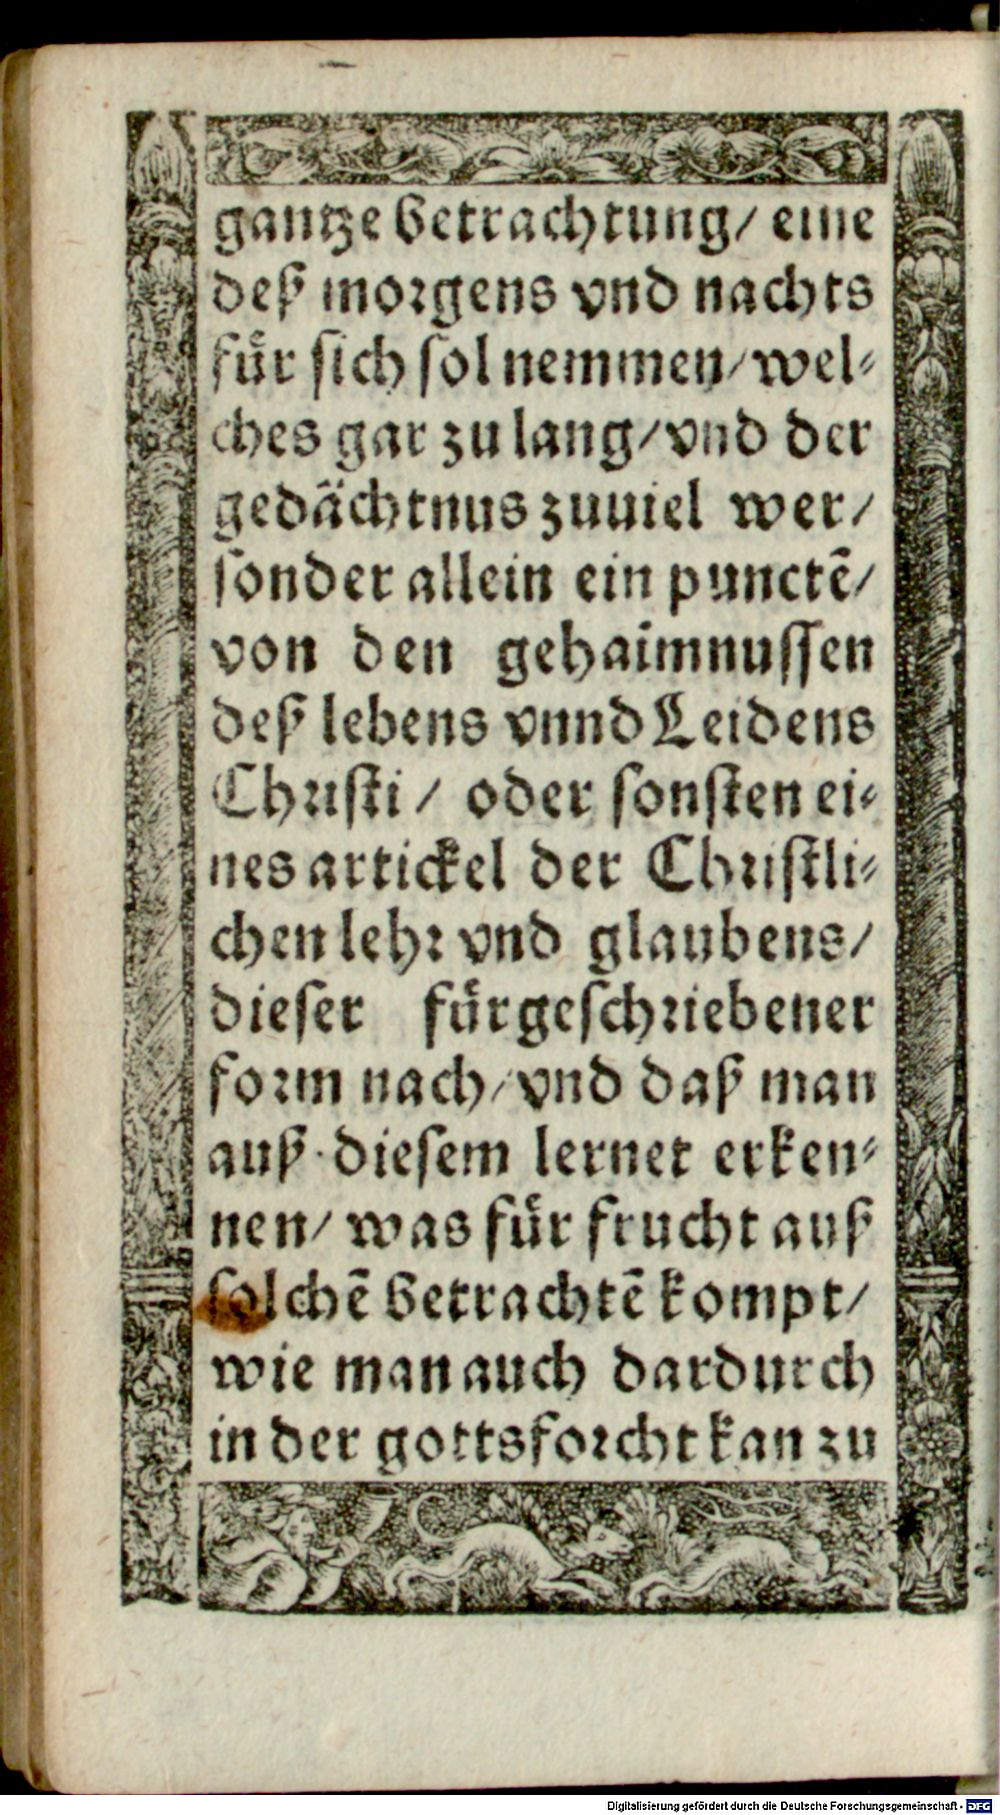 gantze betrachtung/ eine
deß morgens vnd nachts
für sich sol nemmen/ wel-
ches gar zu lang/ vnd der
gedächtnus zuuiel wer/
sonder allein ein punctē/
von den gehaimnussen
deß lebens vnnd Leidens
Christi / oder sonsten ei-
nes artickel der Christli-
chen lehr vnd glaubens/
dieser fürgeschriebener
form nach/ vnd daß man
auß diesem lernet erken-
nen/ was für frucht auß
solchē betrachtē kompt/
wie man auch dardurch
in der gottsforcht kan zu
Digitalisierung gefördert durch die Deutsche Forschungsgemeinschaft - DFG